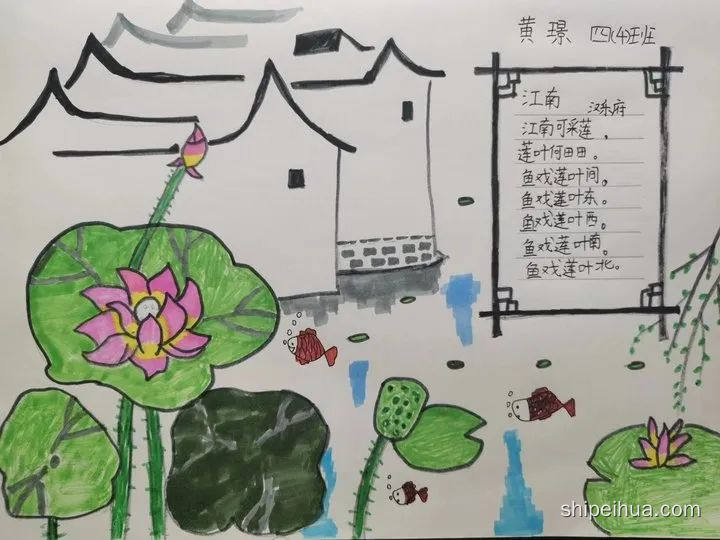 黄璟 四(4)班
江南 汉乐府
江南可采莲，
莲叶何田田。
鱼戏莲叶间。
鱼戏莲叶东。
鱼戏莲叶西。
鱼戏莲叶南。
鱼戏莲叶北。
shipeihua.com